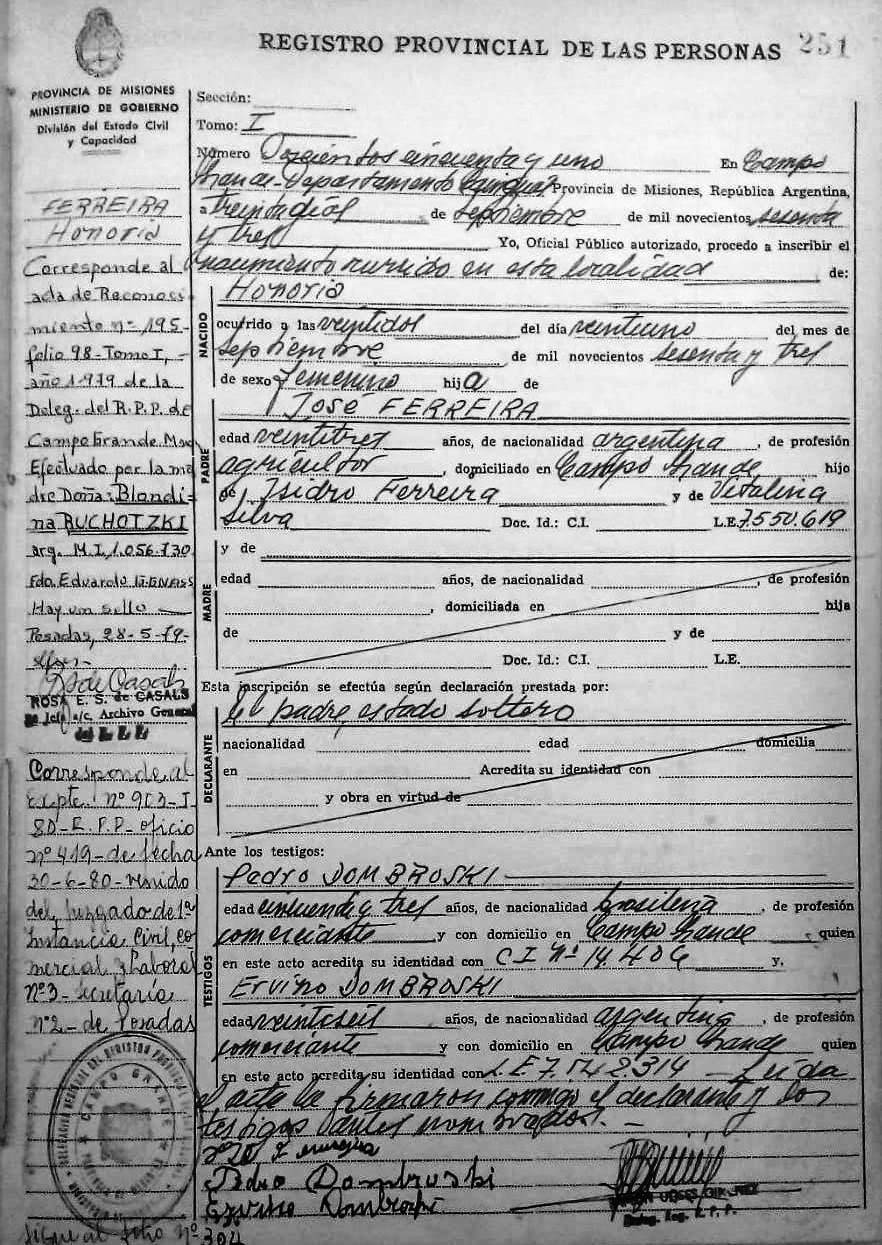 REGISTRO PROVINCIAL DE LAS PERSONAS 251
PROVINCIA DE MISIONES
MINISTERIO DE GOBIERNO
División del Estado Civil
y Capacidad
FERREIRA
Honoria
Corresponde al
acta de Reconoci
miento nº 195-
folio 98-Tomo I,-
año 1979 de la
Deleg. del R.P.P. de
Campo Grande
Efectuado por la ma
dre Doña: Blandi
na RUCHOTZKI
arg. M.I. 1.056.730
Fdo. Eduardo
Hay un sello
Posadas, 28-5-79-
ROSA E. S. de CASALS
a/c. Archivo General
Corresponde al
expte. nº 903-I
80-R.P.P- oficio
nº 419-de fecha
30-6-80-venido
del Juzgado de 1ª
Instancia Civil, co
mercial y Laboral
Nº3-secretaría
nº2-de Posadas
Sigue al folio Nº 304
Sección:
Tomo: I
Número Doscientos cincuenta y uno En Campo
Grande-Departamento Cainguás Provincia de Misiones, República Argentina,
a treinta días de septiembre de mil novecientos sesenta
y tres Yo, Oficial Público autorizado, procedo a inscribir el
nacimiento ocurrido en esta localidad de:
NACIDO
Honoria
ocurrido a las veintidos del día veintiuno del mes de
septiembre de mil novecientos sesenta y tres
de sexo femenino hija de
José FERREIRA
PADRE
edad veintitres años, de nacionalidad argentina, de profesión
agricultor, domiciliado en Campo Grande hijo
de Isidro Ferreira y de Vitalina
Silva Doc. Id.: C.I. L.E. 7.550.619
MADRE
y de
edad años, de nacionalidad, de profesión
, domiciliada en hija
de y de
Doc. Id.: C.I. L.E.
Esta inscripción se efectúa según declaración prestada por:
el padre, estado soltero
DECLARANTE
nacionalidad edad domicilia
en Acredita su identidad con
y obra en virtud de
Ante los testigos:
TESTIGOS
Pedro DOMBROSKI
edad cincuenta y tres años, de nacionalidad brasileña, de profesión
comerciante y con domicilio en Campo Grande, quien
en este acto acredita su identidad con C I Nº 14.406 y,
Ervino DOMBROSKI
edad veintiseis años, de nacionalidad argentina, de profesión
comerciante y con domicilio en Campo Grande quien
en este acto acredita su identidad con L E 7.542.314 - Leída
el acta la firmaron conmigo el declarante y los
testigos antes nombrados.-
Pedro Dombroski
Ervino Dombroski